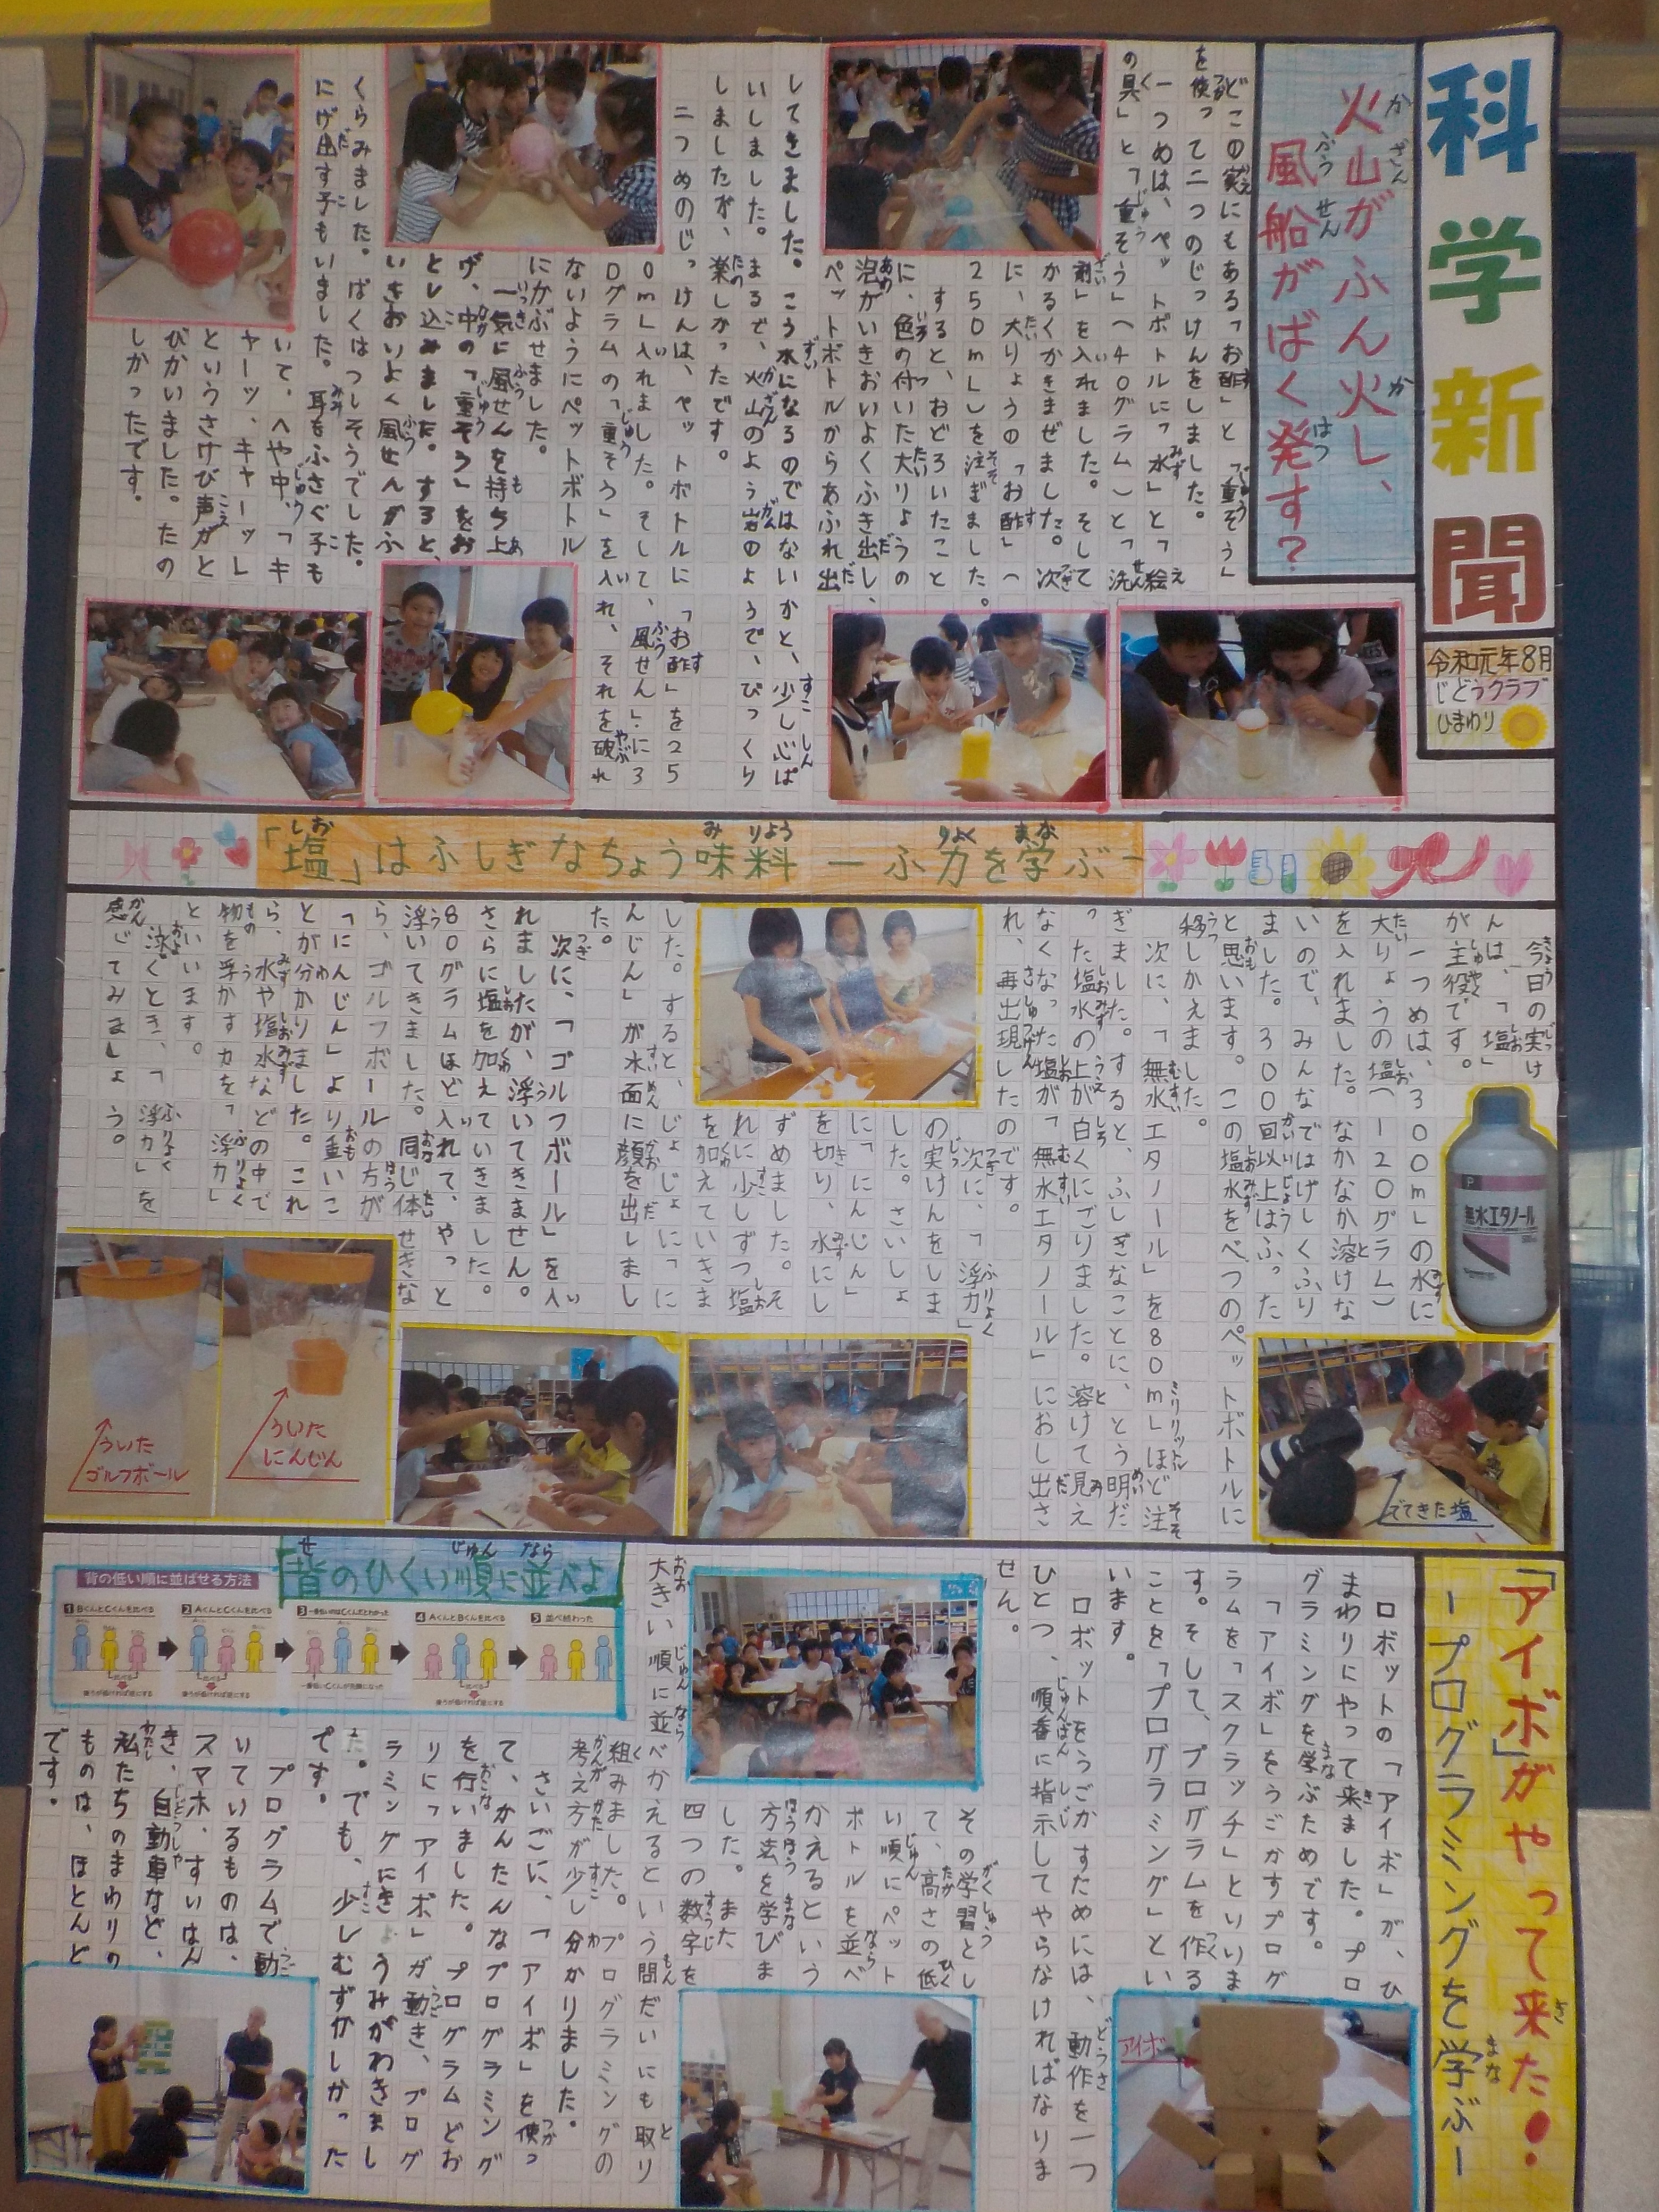 科学新聞
令和元年8月
じどうクラブ
ひまわり
火山がふん火し、
風船がばく発す？
どこの家にもある「お酢」と「重そう」
を使って二つのじっけんをしました。
一つめは、ペットボトルに「水」と「絵
の具」と「重そう」（40グラム）と「洗
剤」を入れました。そして
かるくかきまぜました。次
に、大りょうの「お酢」（
250mL）を注ぎました。
すると、おどろいたこと
に、色の付いた大りょうの
泡がいきおいよくふき出し、
ペットボトルからあふれ出
してきました。こう水になるのではないかと、少し心ぱ
いしました。まるで、火山のよう岩のようで、びっくり
しましたが、楽しかったです。
二つめのじっけんは、ペットボトルに「お酢」を25
0mL入れました。そして、「風せん」に3
0グラムの「重そう」を入れ、それを破れ
ないようにペットボトル
にかぶせました。
一気に風せんを持ち上
げ、中の「重そう」をお
とし込みました。すると、
いきおいよく風せんがふ
くらみました。ばくはつしそうでした。
にげ出す子もいました。耳をふさぐ子も
いて、へや中、「キ
ャーッ、キャーッ」
というさけび声がと
びかいました。たの
しかったです。
「塩」はふしぎなちょう味料 ーふ力を学ぶー
今日の実け
んは、「塩」
が主役です。
一つめは、300mLの水に
大りょうの塩（120グラム）
を入れました。なかなか溶けな
いので、みんなではげしくふり
ました。300回以上はふった
と思います。この塩水をべつのペットボトルに
移しかえました。
次に、「無水エタノール」を80mLほど注
ぎました。すると、ふしぎなことに、とう明だ
った塩水の上が白くにごりました。溶けて見え
なくなった塩が「無水エタノール」におし出さ
れ、再出現したのです。
次に、「浮力」
の実けんをしま
した。さいしょ
に「にんじん」
を切り、水にし
ずめました。そ
れに少しずつ塩
を加えていきま
した。すると、じょじょに「に
んじん」が水面に顔を出しまし
た。
次に、「ゴルフボール」を入
れましたが、浮いてきません。
さらに塩を加えていきました。
80グラムほど入れて、やっと
浮いてきました。同じ体せきな
ら、ゴルフボールの方が
「にんじん」より重いこ
とが分かりました。これ
ら、水や塩水などの中で
物を浮かす力を「浮力」
といいます。
泳ぐとき、「浮力」を
感じてみましょう。
P
無水エタノール
でてきた塩
ういた
にんじん
ういた
ゴルフボール
「アイボ」がやって来た！
ープログラミングを学ぶー
ロボットの「アイボ」が、ひ
まわりにやって来ました。プロ
グラミングを学ぶためです。
「アイボ」をうごかすプログ
ラムを「スクラッチ」といいま
す。そして、プログラムを作る
ことを「プログラミング」とい
います。
ロボットをうごかすためには、動作を一つ
ひとつ、順番に指示してやらなければなりま
せん。
その学習とし
て、高さの低
い順にペット
ボトルを並べ
かえるという
方法を学びま
した。また
四つの数字を
大きい順に並べかえるという問だいにも取り
組みました。プログラミングの
考え方が少し分かりました。
さいごに、「アイボ」を使っ
て、かんたんなプログラミング
を行いました。プログラムどお
りに「アイボ」が動き、プログ
ラミングにきょうみがわきまし
た。でも、少しむずかしかった
です。
プログラムで動
いているものは、
スマホ、すいはん
き、自動車など、
私たちのまわりの
ものは、ほとんど
です。
アイボ
背のひくい順に並べよ
背の低い順に並ばせる方法
1 BくんとCくんを比べる
2 AくんとCくんを比べる
3 一番低いのはCくんだとわかった
4 AくんとBくんを比べる
5 並べ終わった